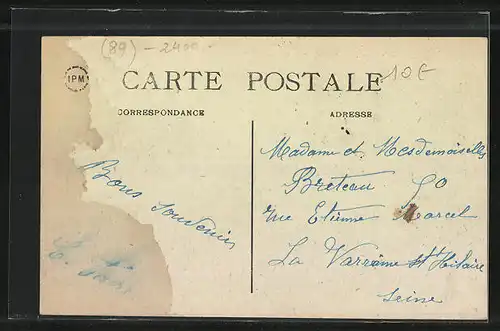 (89) - 2400
IPM
CARTE POSTALE
10€
CORRESPONDANCE
ADRESSE
Bons souvenirs
Madame et Mesdemoiselles
Breteau
rue Etienne Marcel
La Varenne St Hilaire
Seine